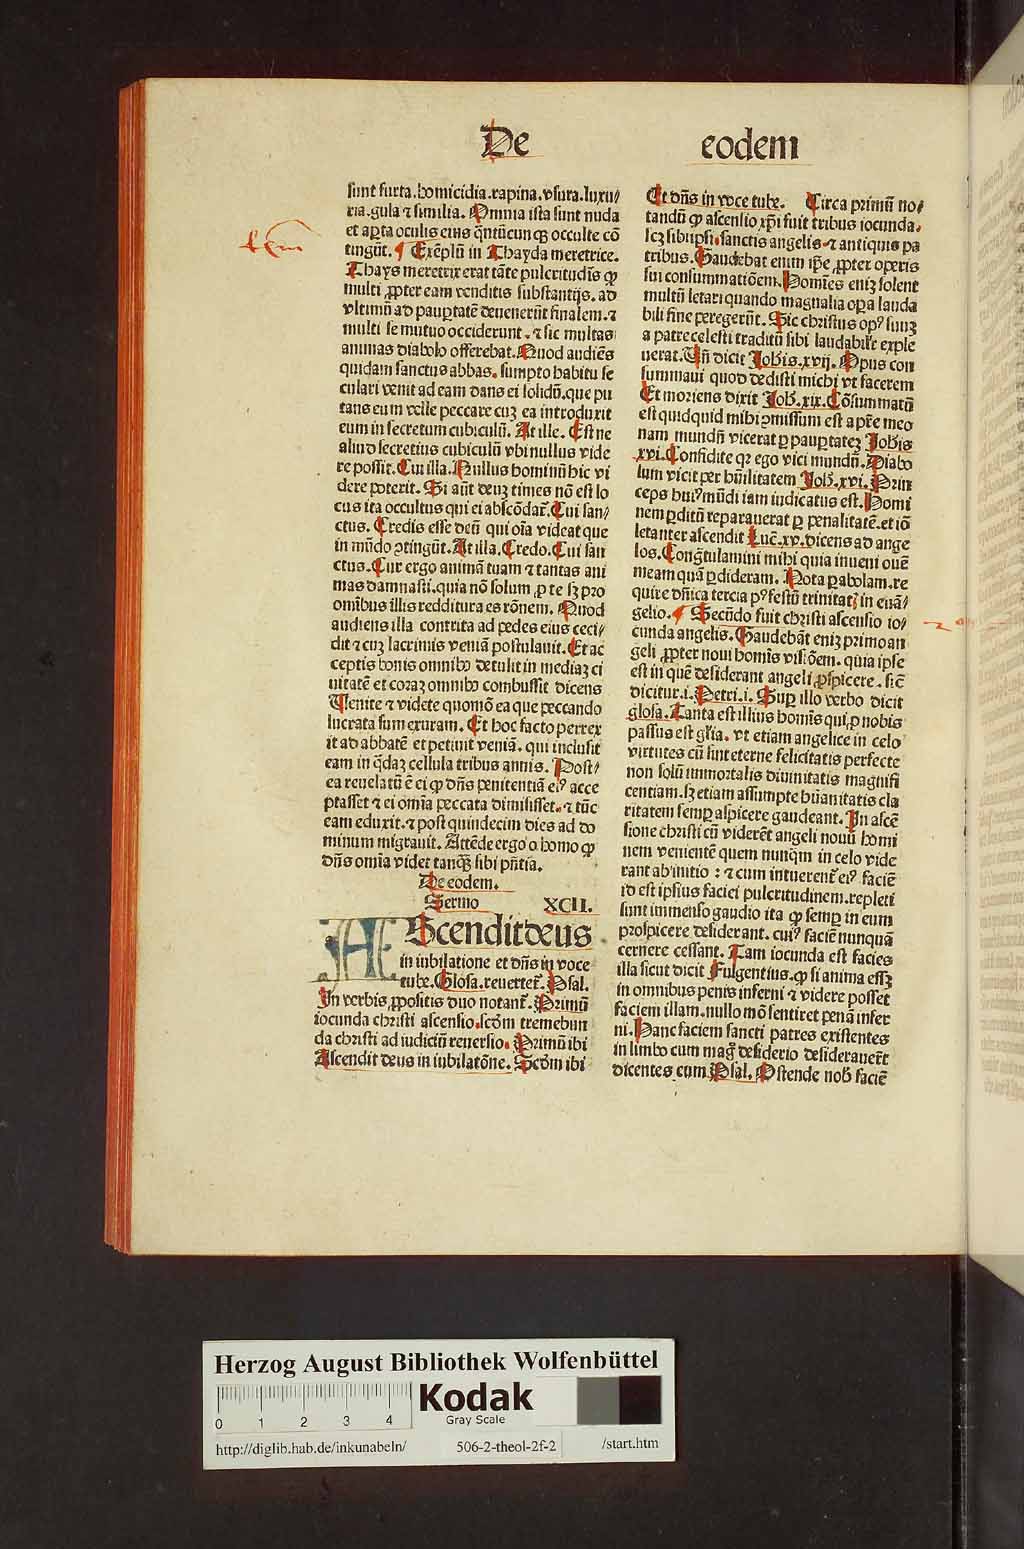 De eodem
sunt furta.homicidia.rapina.vsura.luxu/
ria.gula ⁊ similia. Omnia ista sunt nuda
et aꝑta oculis eius qͥntūcunqꝫ occulte cō
tingūt. ¶ Exēplū in Thayda meretrice.
Thays meretrix erat tāte pulcritudīs ꝙ
multi ꝓpter eam venditis substantijs. ad
vltimū ad pauꝑtatē deuenerūt finalem.⁊
multi se mutuo occiderunt. ⁊ sic multas
animas diabolo offerebat. Quod audiēs
quidam sanctus abbas. sumpto habitu se
culari venit ad eam dans ei solidū.que pu
tans eum velle peccare cuꝫ ea introduxit
eum in secretum cubiculū. At ille. Est ne
aliud secretius cubiculū vbi nullus vide
re possit. Cui illa. Nullus hominū hic vi
dere poterit. Si aūt deuꝫ times nō est lo
cus ita occultus qui ei abscōdat᷑. Cui san/
ctus. Credis esse deū qui oīa videat que
in mūdo ꝯtingūt. At illa. Credo. Cui san
ctus. Cur ergo animā tuam ⁊ tantas ani
mas damnasti.quia nō solum ꝓ te sꝫ pro
omībus illis redditura es rōnem. Quod
audiens illa contrita ad pedes eius ceci/
dit ⁊ cuꝫ lacrimis veniā postulauit. Et ac
ceptis bonis omnibꝰ detulit in mediaꝫ ci
uitatē et coraꝫ omnibꝰ combussit dicens
Uenite ⁊ videte quomō ea que peccando
lucrata sum exuram. Et hoc facto perrex
it ad abbatē et petiuit veniā. qui inclusit
eam in qͣdaꝫ cellula tribus annis. Post/
ea reuelatū ē ei ꝙ dn̄s penitentiā eiꝰ acce
ptasset ⁊ ei omīa peccata dimisisset.⁊ tūc
eam eduxit.⁊ post quindecim dies ad do
minum migrauit. Attēde ergo o homo ꝙ
dn̄s omīa videt tanqͣꝫ sibi pn̄tia.
De eodem.
Sermo XCII.
AScendit deus
in iubilatione et dn̄s in voce
tube. Glosa. reuertet᷑. Psal.
In verbis ꝓpositis duo notant᷑. Primū
iocunda christi ascensio.scd̄m tremebun
da christi ad iudiciū reuersio. Primū ibi
Ascendit deus in iubilatōne. Scd̄m ibi
Et dn̄s in voce tube. Circa primū no/
tandū ꝙ ascensio xp̄i fuit tribus iocunda.
scꝫ sibiipsi.sanctis angelis.⁊ antiquis pa
tribus. Gaudebat enim ip̄e ꝓpter operis
sui consummatiōem. Homīes enīꝫ solent
multū letari quando magnalia oꝑa lauda
bili fine peregerūt. Sic christus opꝰ suuꝫ
a patre celesti traditū sibi laudabilit᷑ exple
uerat. Un̄ dicit Joh̄is.xvij. Opus con
summaui quod dedisti michi vt facerem
Et moriens dixit Joh̄.xix. Cōsummatū
est quidquid mihi ꝯmissum est a pr̄e meo
nam mundū vicerat ꝑ pauꝑtateꝫ Joh̄is
xvi. Confidite qꝛ ego vici mundū. Diabo
lum vicit per hūilitatem Joh̄.xvi. Prin
ceps huiꝰ mūdi iam iudicatus est. Homi
nem ꝑditū reparauerat ꝑ penalitatē.et iō
letanter ascendit Luc̄.xv.dicens ad ange
los. Cong̈tulamini mihi quia inueni ouē
meam quā ꝑdideram. Nota ꝑabolam.re
quire dn̄ica tercia pꝰ festū trinitat᷑ in euā/
gelio. ¶ Secūdo fuit christi ascensio io/
cunda angelis. Gaudebāt enīꝫ primo an
geli ꝓpter noui homīs visiōem. quia ipse
est in quē desiderant angeli ꝓspicere. sic̄
dicitur.i.Petri.i. Suꝑ illo verbo dicit
glosa. Tanta est illius homīs qui ꝓ nobis
passus est gl̄ia. vt etiam angelice in celo
virtutes cū sint eterne felicitatis perfecte
non solū immortalis diuinitatis magnifi
centiam.sꝫ etiam assumpte hūanitatis cla
ritatem semꝑ aspicere gaudeant. In ascē
sione christi cū viderēt angeli nouū homi
nem venientē quem nunqͣm in celo vide
rant ab initio : ⁊ cum intuerent᷑ eiꝰ faciē
id est ipsius faciei pulcritudinem.repleti
sunt immenso gaudio ita ꝙ semꝑ in eum
prospicere desiderant. cuiꝰ faciē nunquā
cernere cessant. Tam iocunda est facies
illa sicut dicit Fulgentius. ꝙ si anima essꝫ
in omnibus penis inferni ⁊ videre posset
faciem illam.nullo mō sentiret penā infer
ni. Hanc faciem sancti patres existentes
in limbo cum magͦ desiderio desiderauer̄t
dicentes cum Psal. Ostende nob̄ faciē
Herzog August Bibliothek Wolfenbüttel
0 1 2 3 4
Kodak
Gray Scale
http://diglib.hab.de/inkunabeln/ 506-2-theol-2f-2 /start.htm